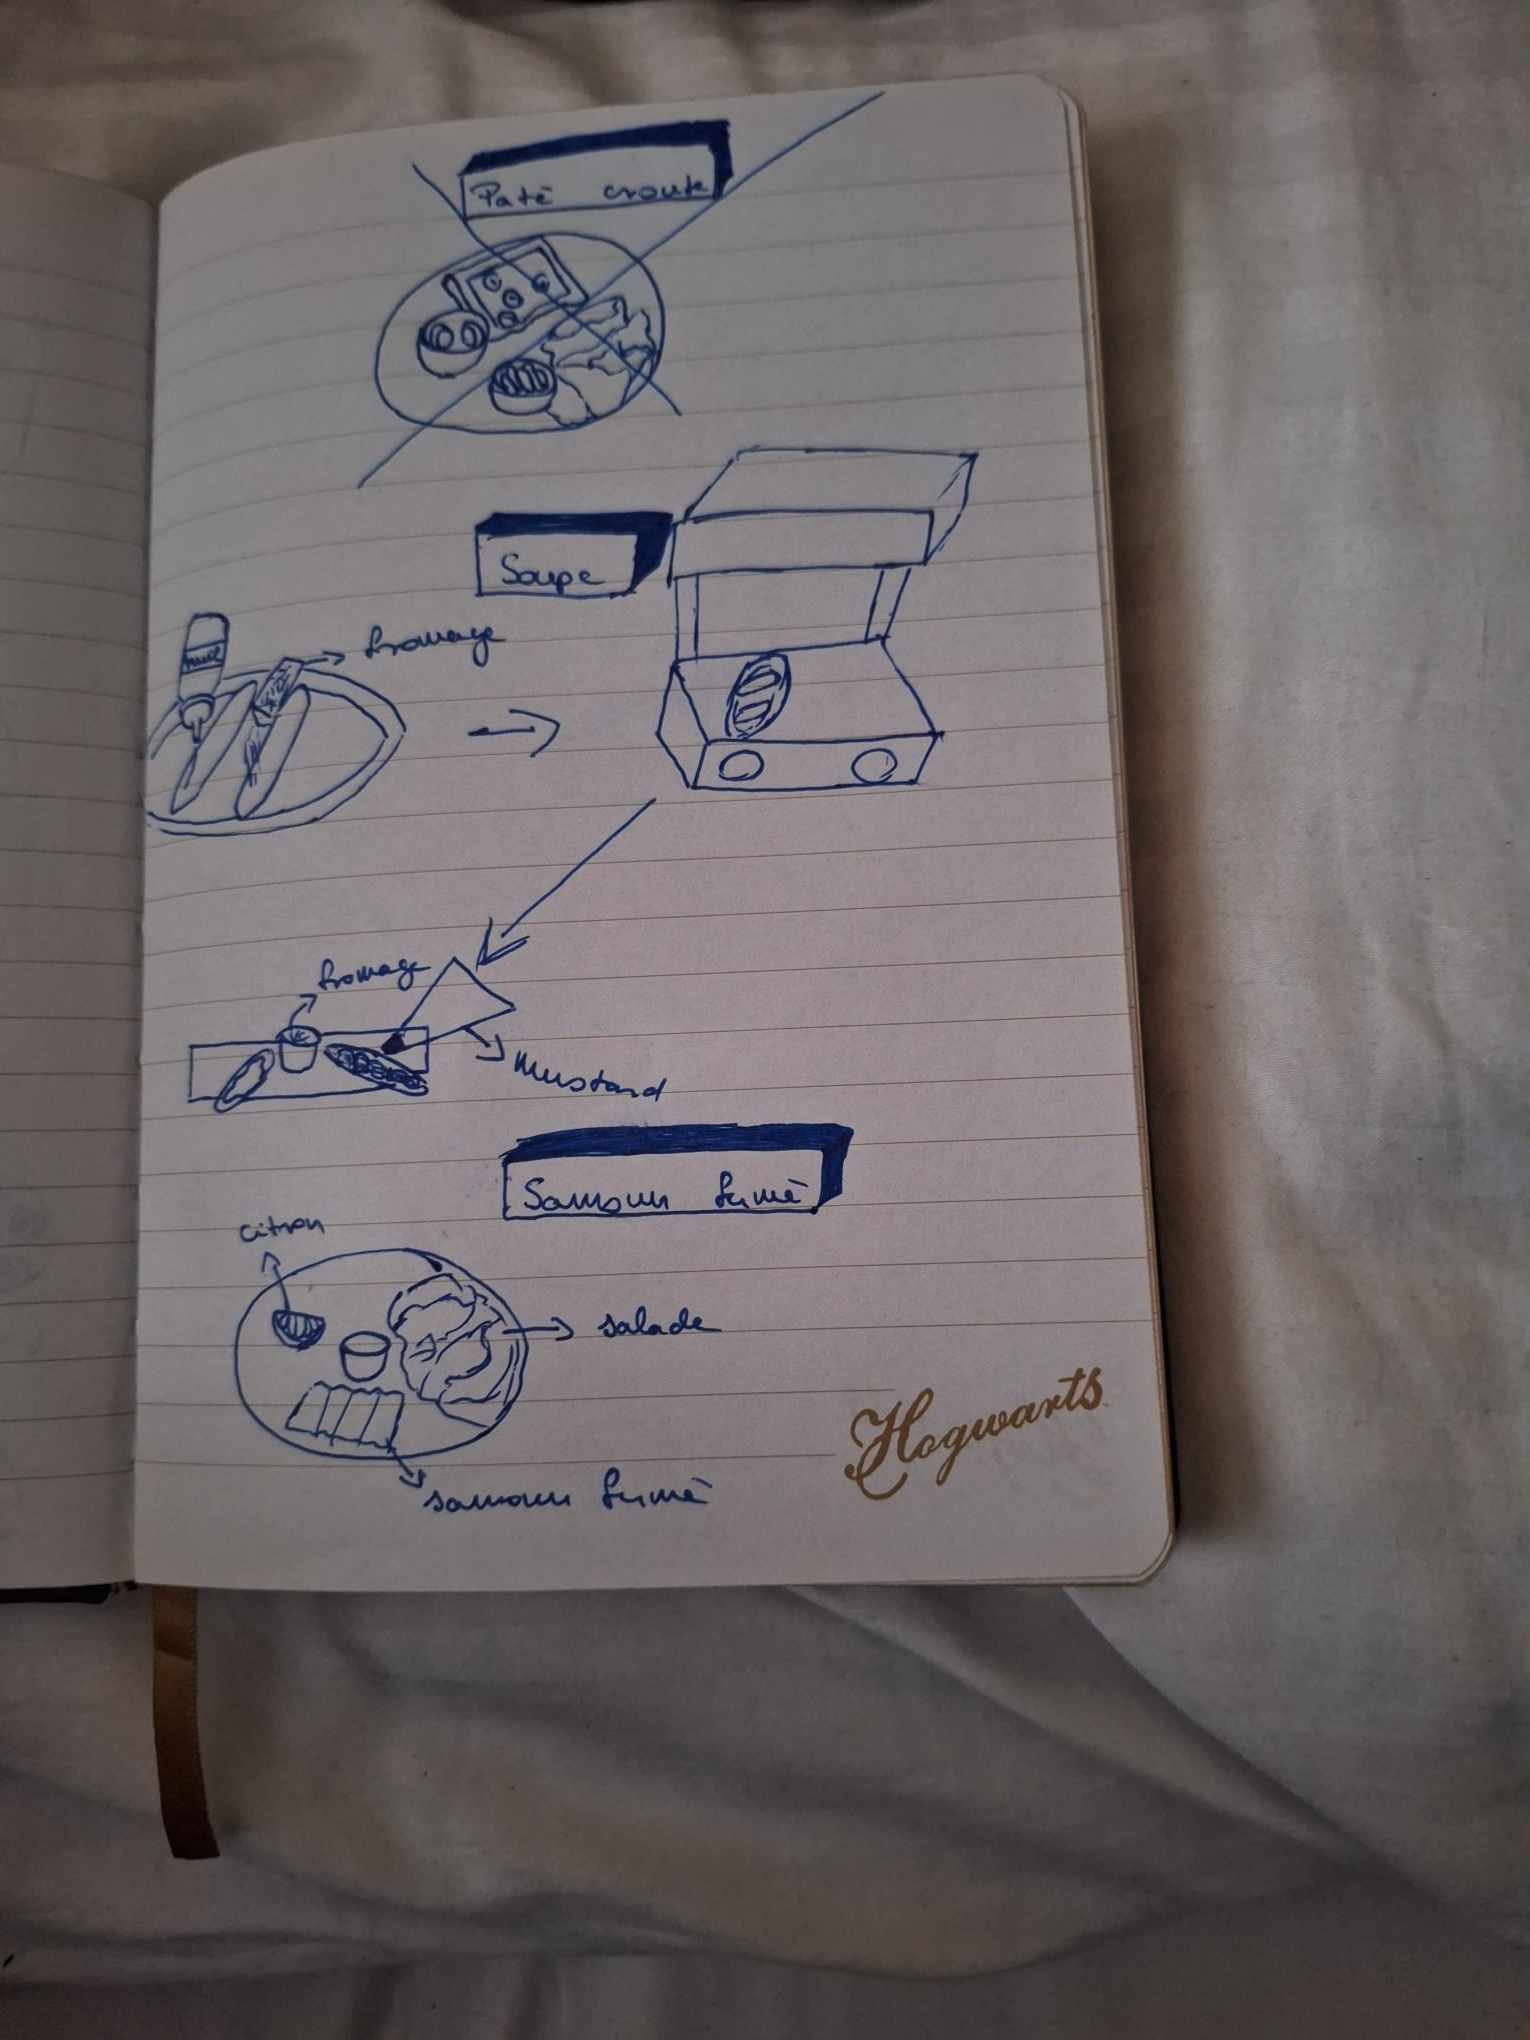 Patè croute
Soupe
fromage
fromage
mustard
Samoun fumè
citron
salade
samoun fumè
Hogwarts